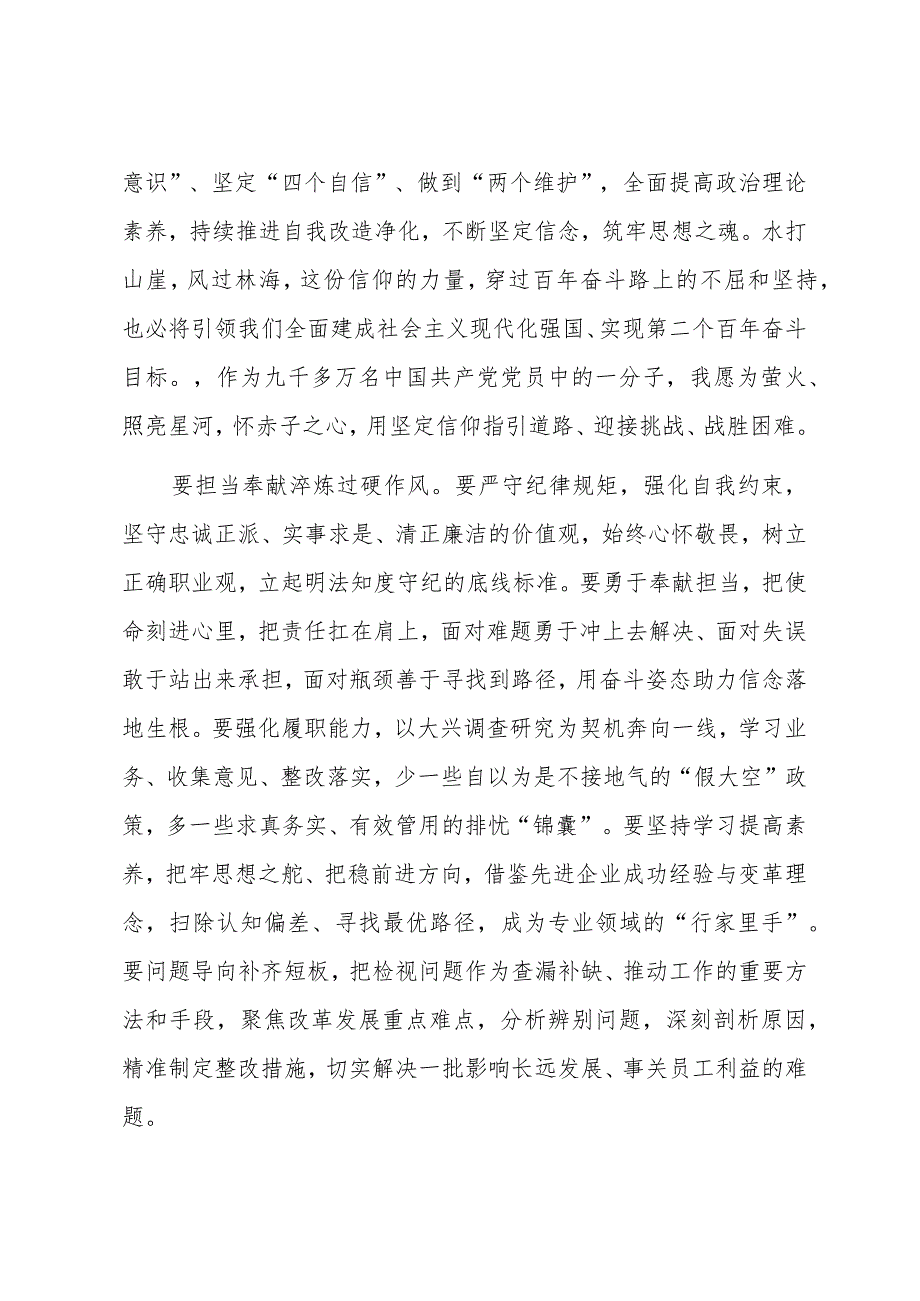 意识”、坚定“四个自信”、做到“两个维护”，全面提高政治理论
素养，持续推进自我改造净化，不断坚定信念，筑牢思想之魂。水打
山崖，风过林海，这份信仰的力量，穿过百年奋斗路上的不屈和坚持，
也必将引领我们全面建成社会主义现代化强国、实现第二个百年奋斗
目标。，作为九千多万名中国共产党党员中的一分子，我愿为萤火、
照亮星河，怀赤子之心，用坚定信仰指引道路、迎接挑战、战胜困难。
要担当奉献淬炼过硬作风。要严守纪律规矩，强化自我约束，
坚守忠诚正派、实事求是、清正廉洁的价值观，始终心怀敬畏，树立
正确职业观，立起明法知度守纪的底线标准。要勇于奉献担当，把使
命刻进心里，把责任扛在肩上，面对难题勇于冲上去解决、面对失误
敢于站出来承担，面对瓶颈善于寻找到路径，用奋斗姿态助力信念落
地生根。要强化履职能力，以大兴调查研究为契机奔向一线，学习业
务、收集意见、整改落实，少一些自以为是不接地气的“假大空”政
策，多一些求真务实、有效管用的排忧“锦囊”。要坚持学习提高素
养，把牢思想之舵、把稳前进方向，借鉴先进企业成功经验与变革理
念，扫除认知偏差、寻找最优路径，成为专业领域的“行家里手”。
要问题导向补齐短板，把检视问题作为查漏补缺、推动工作的重要方
法和手段，聚焦改革发展重点难点，分析辨别问题，深刻剖析原因，
精准制定整改措施，切实解决一批影响长远发展、事关员工利益的难
题。